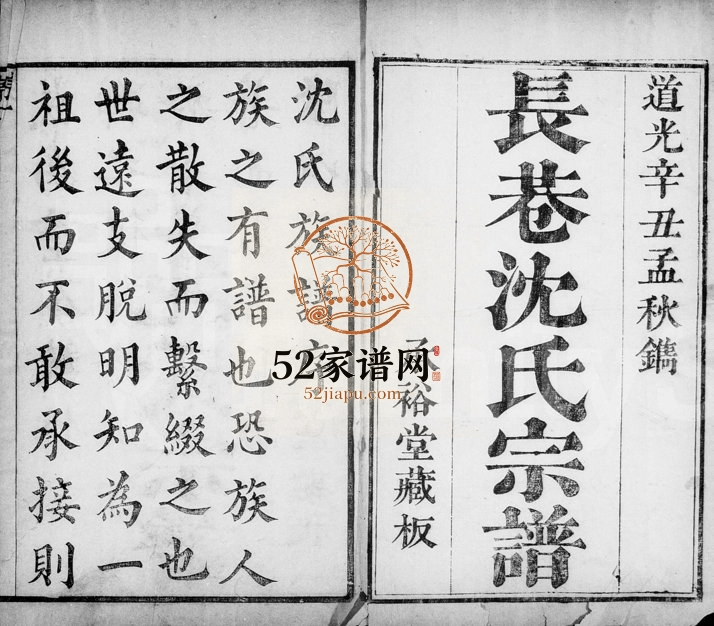 道光辛丑孟秋鐫
長巷沈氏宗譜
裕堂藏板
沈氏族譜序
族之有譜也恐族人
之散失而繫綴之也
世遠支脱明知為一
祖後而不敢承接則
52家谱网
52jiapu.com